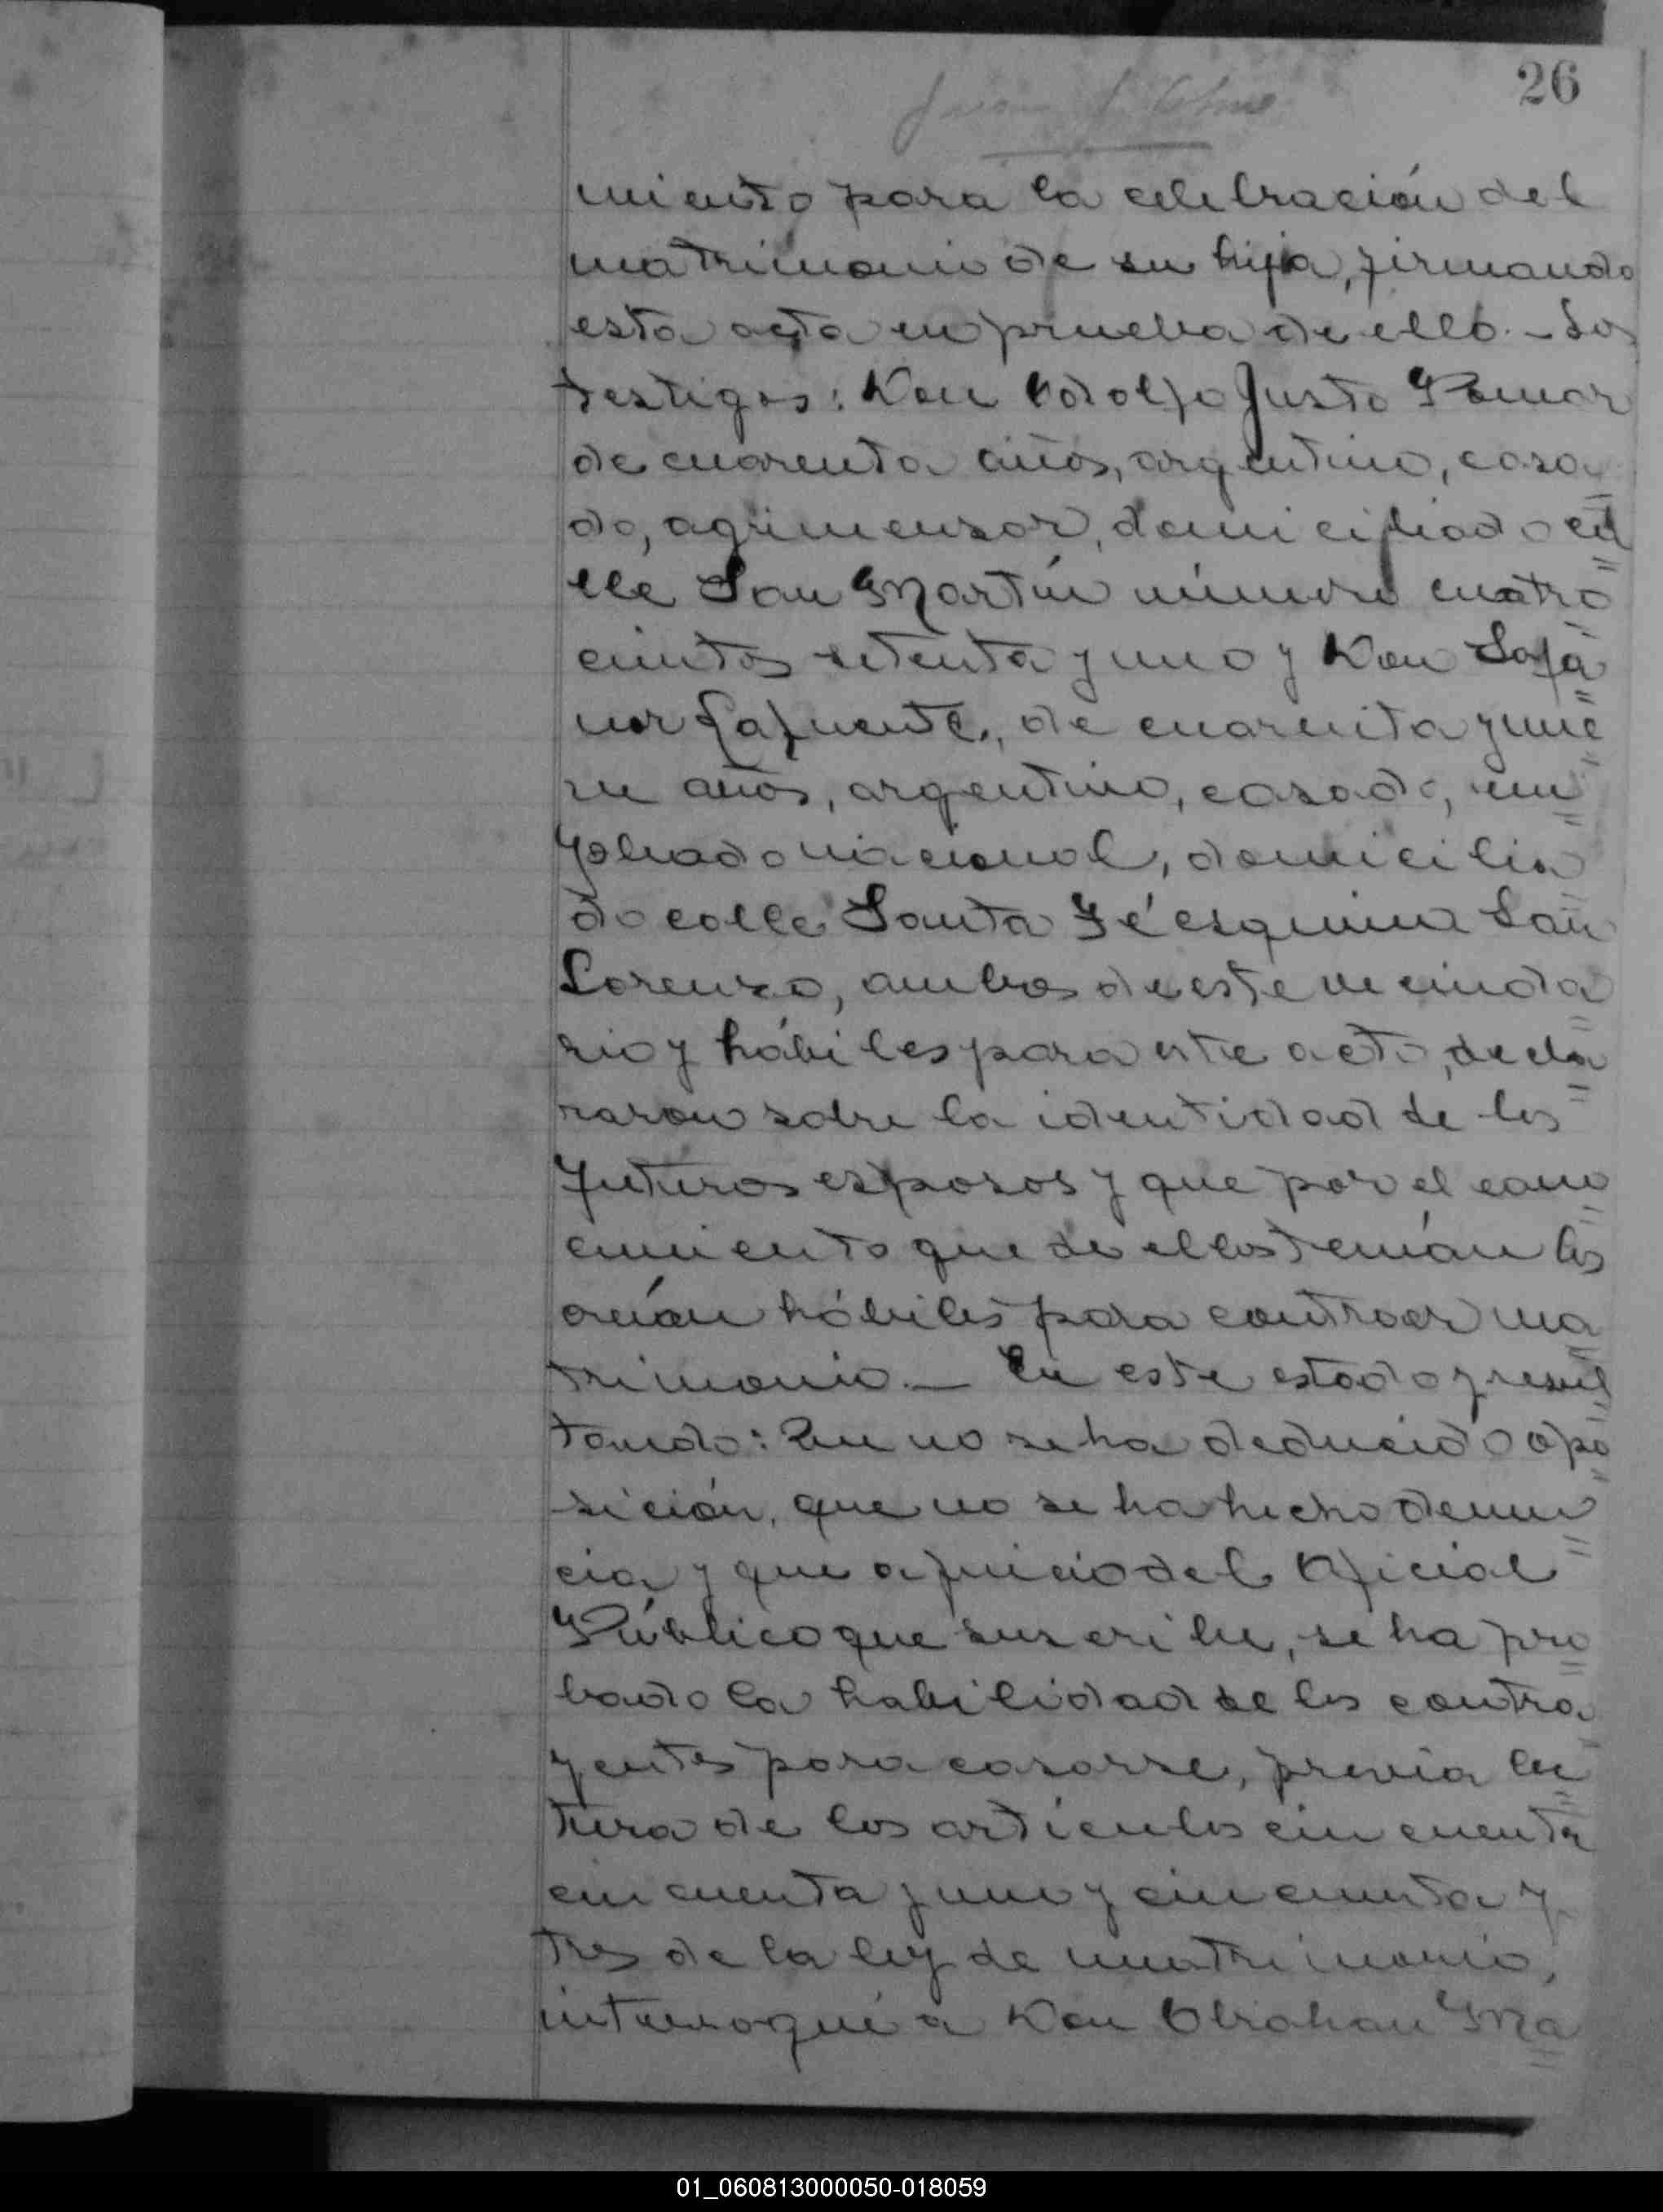 26
miento para la celebración del
matrimonio de su hija, firmando
esta acta en prueba de ello. - Los
testigos: Don Adolfo Justo Pomar
de cuarenta años, argentino, casa=
do, agrimensor, domiciliado ca=
lle San Martín número cuatro=
cientos setenta y uno y Don Safa=
nor Lafuente, de cuarenta y nue=
ve años, argentino, casado, em=
pleado nacional, domicilia=
do calle Santa Fé esquina San
Lorenzo, ambos de este vecinda=
rio y hábiles para este acto, decla=
raron sobre la identidad de los
futuros esposos y que por el cono=
cimiento que de ellos tenían los
creían hábiles para contraer ma=
trimonio. - En este estado y resul=
tando: Que no se ha deducido opo=
sición, que no se ha hecho denun=
cia y que a juicio del Oficial
Público que suscribe, se ha pro=
bado la habilidad de los contra=
yentes para casarse, previa lec=
tura de los artículos cincuenta
cincuenta y uno y cincuenta y
tres de la ley de matrimonio,
interrogué a Don Abrahan Ma=
01_060813000050-018059